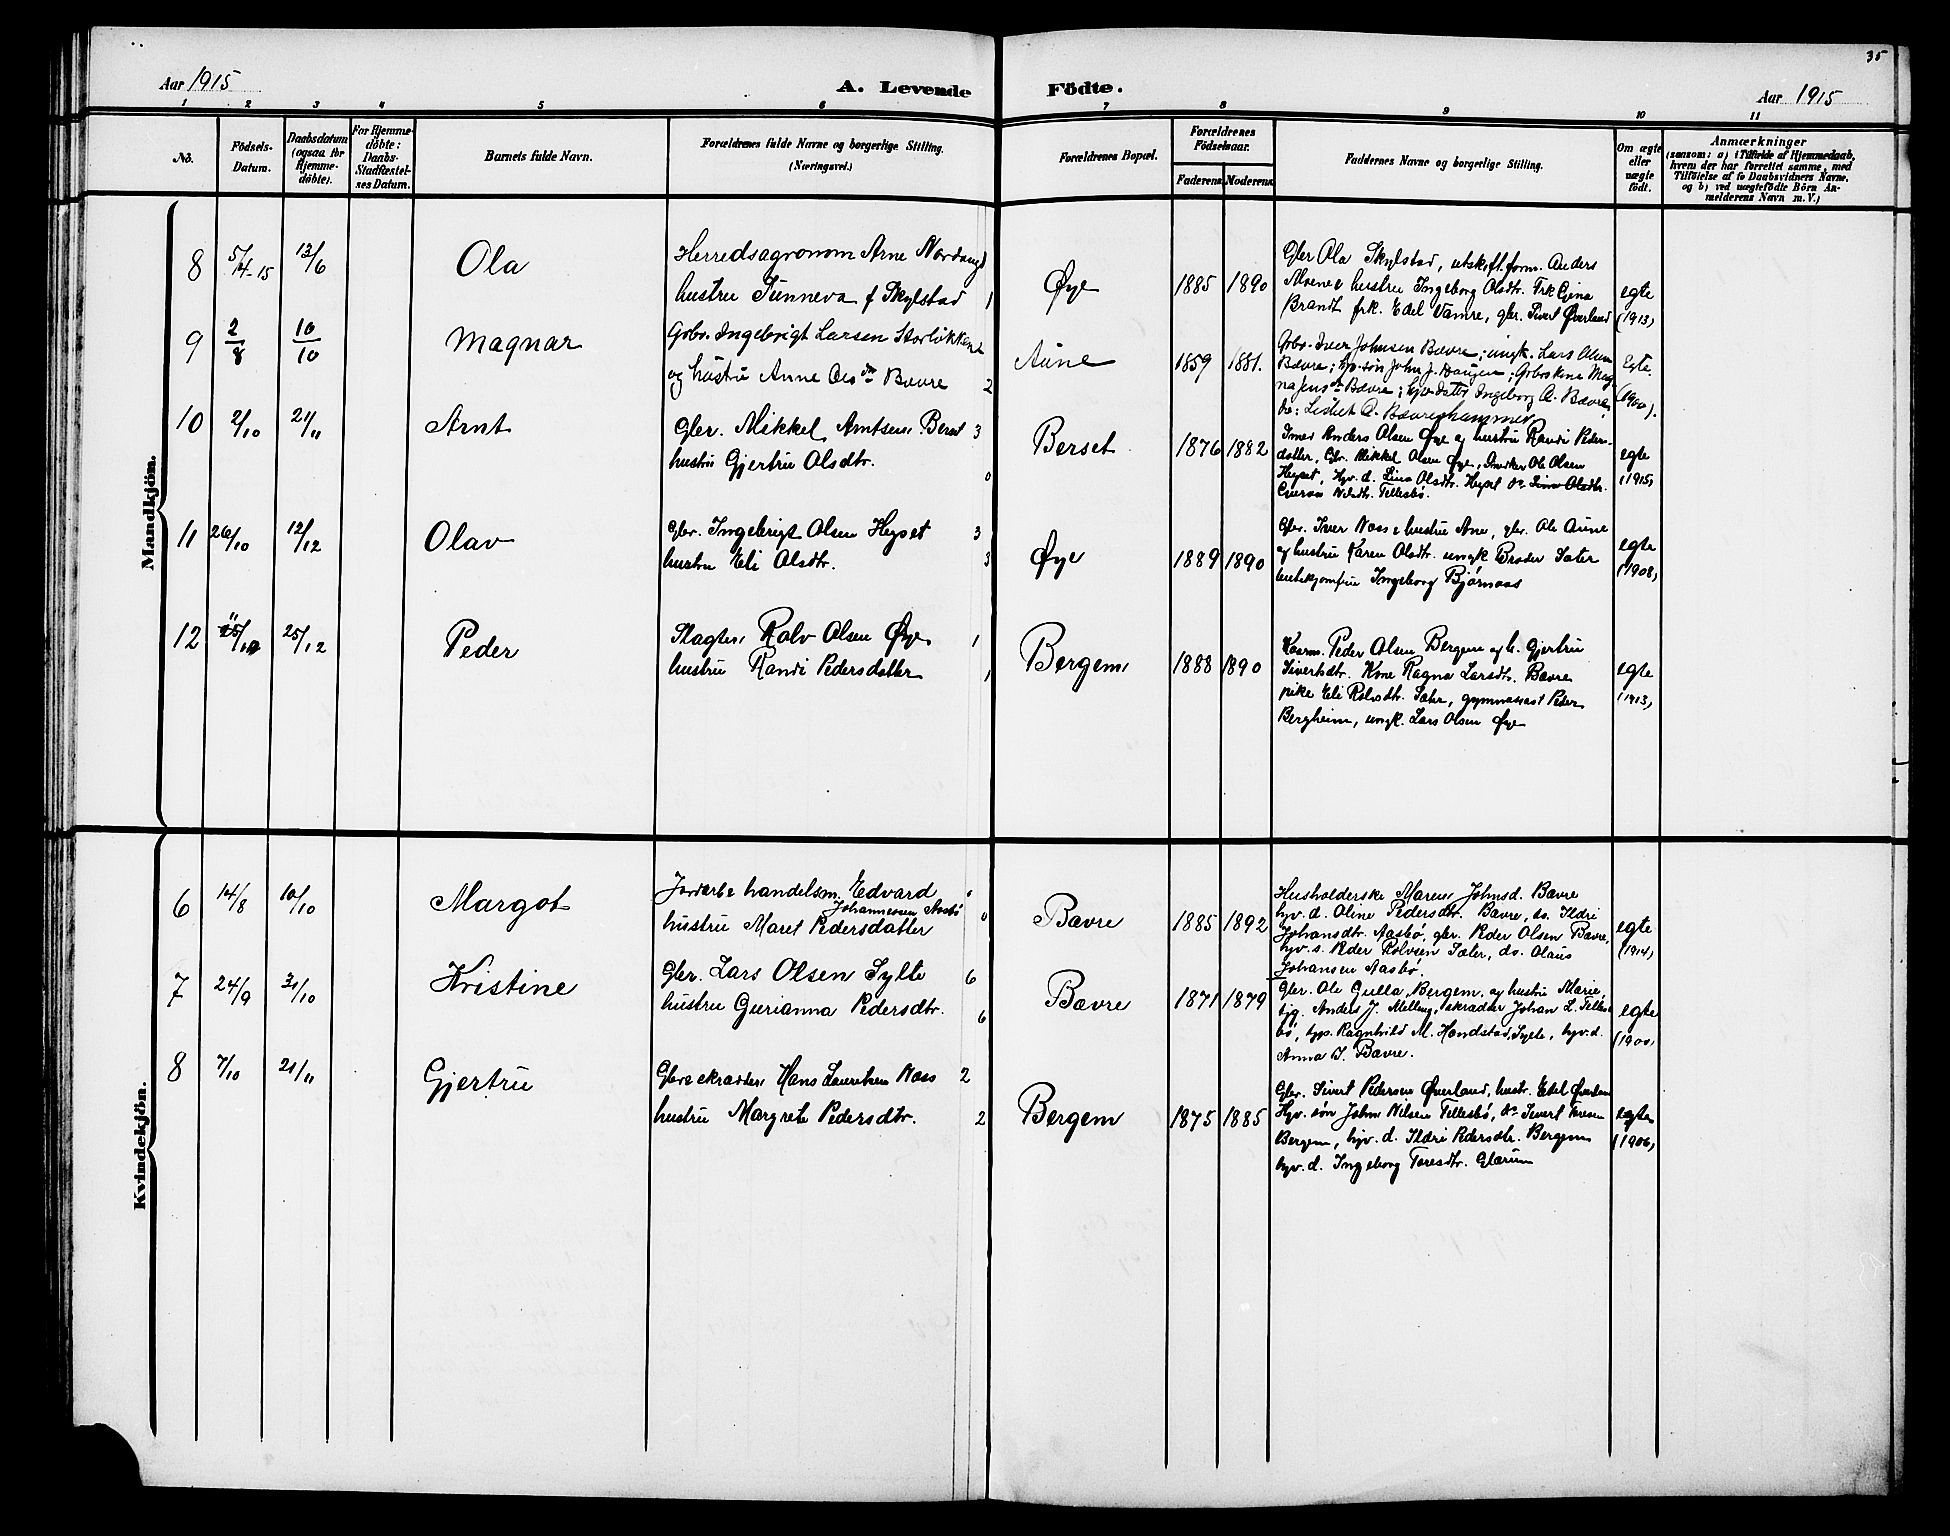 35
Aar 1915
A. Levende Födte.
Aar 1915
1 2 3 4 5 6 7 8 9 10 11
No.
Födsels-
Datum.
Daabsdatum
(ogsaa for
Hjemme-
döbte).
For Hjemme-
döbte:
Daabs-
Stadfæstel-
ses Datum.
Barnets fulde Navn.
Forældrenes fulde Navne og borgerlige Stilling.
(Næringsvei.)
Forældrenes Bopæl.
Forældrenes
Födselsaar.
Faderens Moderens
Faddernes Navne og borgerlige Stilling.
Om ægte
eller
uægte
født.
Anmærkninger
(saasom: a) i Tilfælde af Hjemmedaab,
hvem der har forrettet samme, med
Tilföielse af to Daabsvidners Navne.
og b) ved uægtefödte Börn An-
melderens Navn m. V.)
Mandkjön.
8 5/4-15 13/6 Ola
Herredsagronom Arne Nordang
hustru Sunneva f Skylstad 1
Øye 1885 1890
Gbr Ola Skylstad, utskift.form. Anders
Moene hustru Ingeborg Olsdtr. Frk Gina
Brandt frk. Edel Vamre, gbr. Sivert Øverland
egte
(1913)
9 2/8 10/10 Magnar
Gbr. Ingebrigt Larsen Storløkken
og hustru Anne Olsdtr Bævre 2
Aune 1859 1881.
Gbr. Iver Johnsen Bævre; ungk. Lars Olsen
Bævre; hjv. søn John J. Haugen; Gbrskone Mag-
na Jensdtr Bævre; hjv. datter Ingeborg A. Bævre,
do: Lisbet O. Bævrehammer
Egte.
(1900).
10 2/10 21/11 Arnt
Gbr. Mikkel Arntsen Berset 3
hustru Gjertru Olsdtr. 0
Berset 1876 1882
Anders Olsen Øye og hustru Randi Peders-
datter, Gbr. Mikkel Olsen Øye, Ole Olsen
Heyset, Hjv. d. Lina Olsdtr. Heyset
Nilsdtr. Tellesbø.
egte
(1915)
11 26/10 12/12 Olav
Gbr. Ingebrigt Olsen Heyset 3
hustru Eli Olsdtr. 3
Øye 1889 1890
Gbr. Iver Naas & hustru Ane, gbr. Ole Aune
og hustru Karen Olsdtr. ungk Broder Sæter
butikjomfru Ingeborg Bjørnaas
egte
(1908)
12 25/12 Peder
Slagter Rolv Olsen Øye 1
hustru Randi Pedersdatter 1
Bergem 1888 1890
Kaarm. Peder Olsen Bergem og h. Gjertru
Sivertsdtr. Kone Ragna Larsdtr. Bævre
pike Eli Rolvsdtr. Sæter, gymnasiast Peder
Bergheim, ungk. Lars Olsen Øye
egte
(1913)
Kvindekjön.
6 14/8 10/10 Margot
Jordarb & handelsm. Edvard
Johannessen Aasbø
hustru Maret Pedersdatter 0
Bævre 1885 1892
Husholderske Maren Johnsd. Bævre
hjv. d. Oline Pedersdtr. Bævre, do. Ildri
Johansdtr. Aasbø, gbr. Peder Olsen Bævre,
hjv. s. Peder Rolvsen Sæter, do. Olaus
Johansen Aasbø.
egte
(1914)
7 24/9 31/10 Kristine
Gbr. Lars Olsen Sylte 6
hustru Gurianna Pedersdtr. 6
Bævre 1871 1879
Gbr. Ole Gulla, Bergem. og hustru Marie
tjg. Anders J. Melling, skrædder Johan L. Telles-
bø, Ragnhild M. Handstad, Sylte, hjv. d.
Anna I. Bævre.
egte
(1900)
8 7/10 21/11 Gjertru
Gbr & skrædder Hans Lauritsen Naas 2
hustru Margrete Pedersdtr. 2
Bergem 1875 1885
Gbr. Sivert Pedersen Øverland, hustr. Edel Øverland
Hjv. søn John Nilsen Tellesbø, do Sivert Toresen
Bergem, hjv. d. Ildri Pedersdtr. Bergem
hjv. d. Ingeborg Toresdtr. Glærum
egte
(1906)